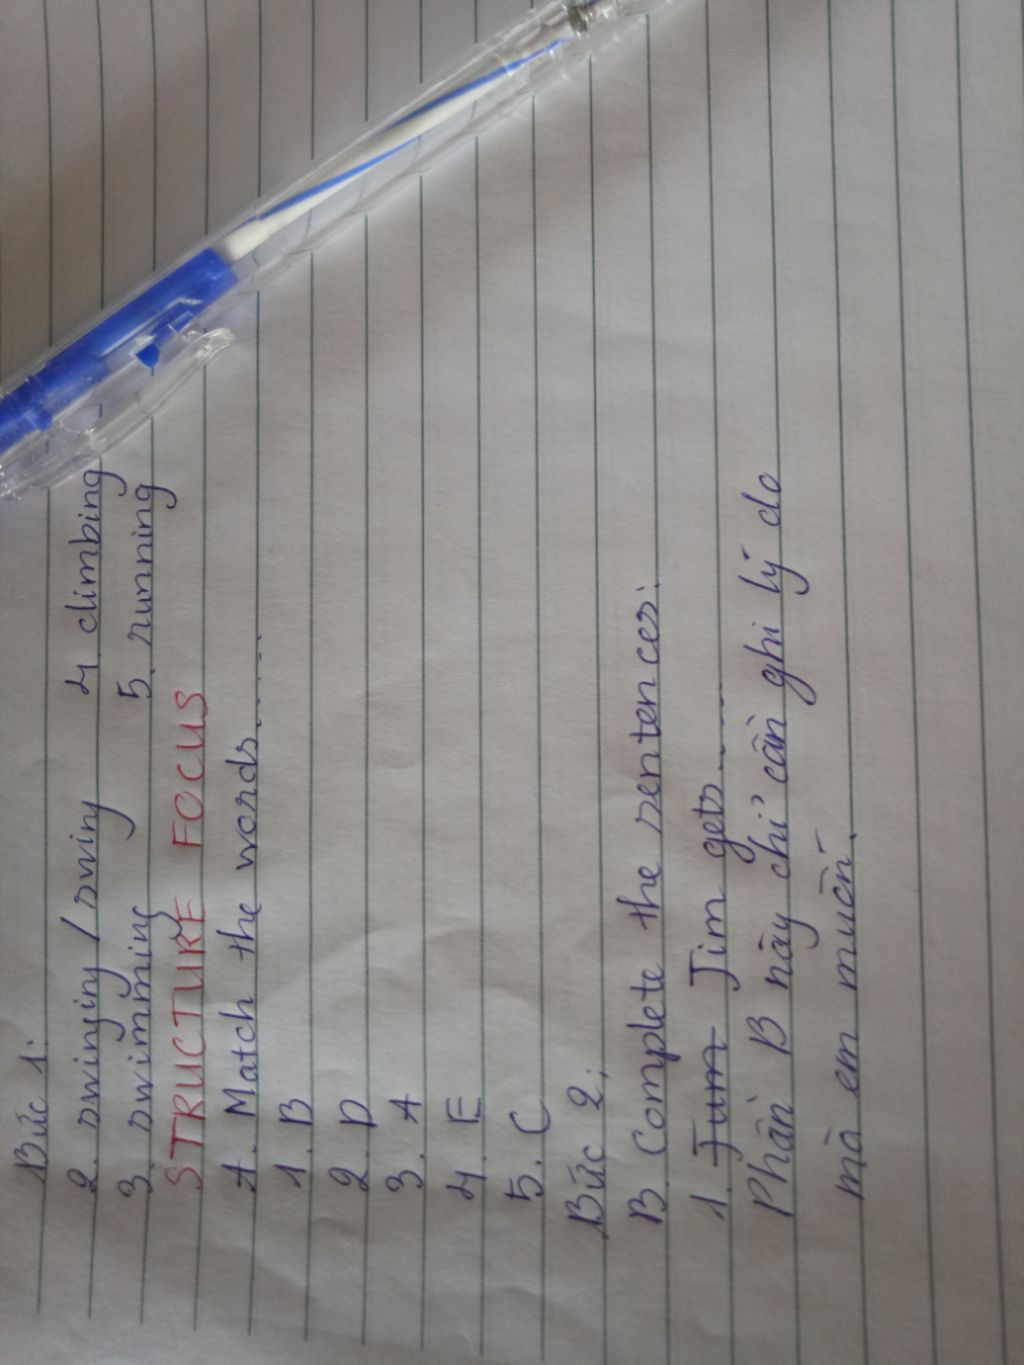 Bức 1:
2. swinging / swing 4. climbing
3. swimming 5. running
STRUCTURE FOCUS
A. Match the words.......
1. B
2. D
3. A
4. E
5. C
Bức 2:
B. Complete the sentences:
1. Jum Jim gets.......
Phần B này chỉ cần ghi lý do
mà em muốn.